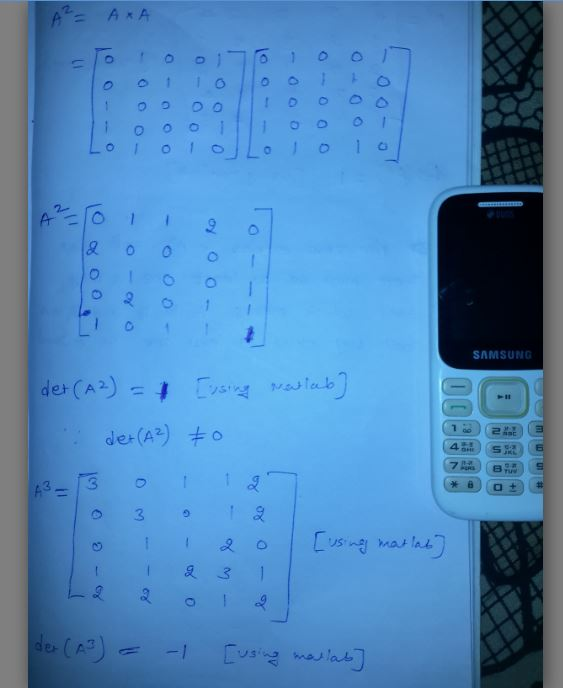 A² = A × A
= [0 1 0 0 1] [0 1 0 0 1]
[0 0 1 1 0] [0 0 1 1 0]
[1 0 0 0 0] [1 0 0 0 0]
[1 0 0 0 1] [1 0 0 0 1]
[0 1 0 1 0] [0 1 0 1 0]
A² = [0 1 1 2 0]
[2 0 0 0 1]
[0 1 0 0 1]
[0 2 0 1 1]
[1 0 1 1 1]
det(A²) = 1 [using matlab]
∴ det(A²) ≠ 0
A³ = [3 0 1 1 2]
[0 3 0 1 2]
[0 1 1 2 0]
[1 1 2 3 1]
[2 2 0 1 2]
[using matlab]
det(A³) = -1 [using matlab]
DUOS
SAMSUNG
1
2 ABC
3
4 GHI
5 JKL
6
7 PQRS
8 TUV
9
*
0 ±
#